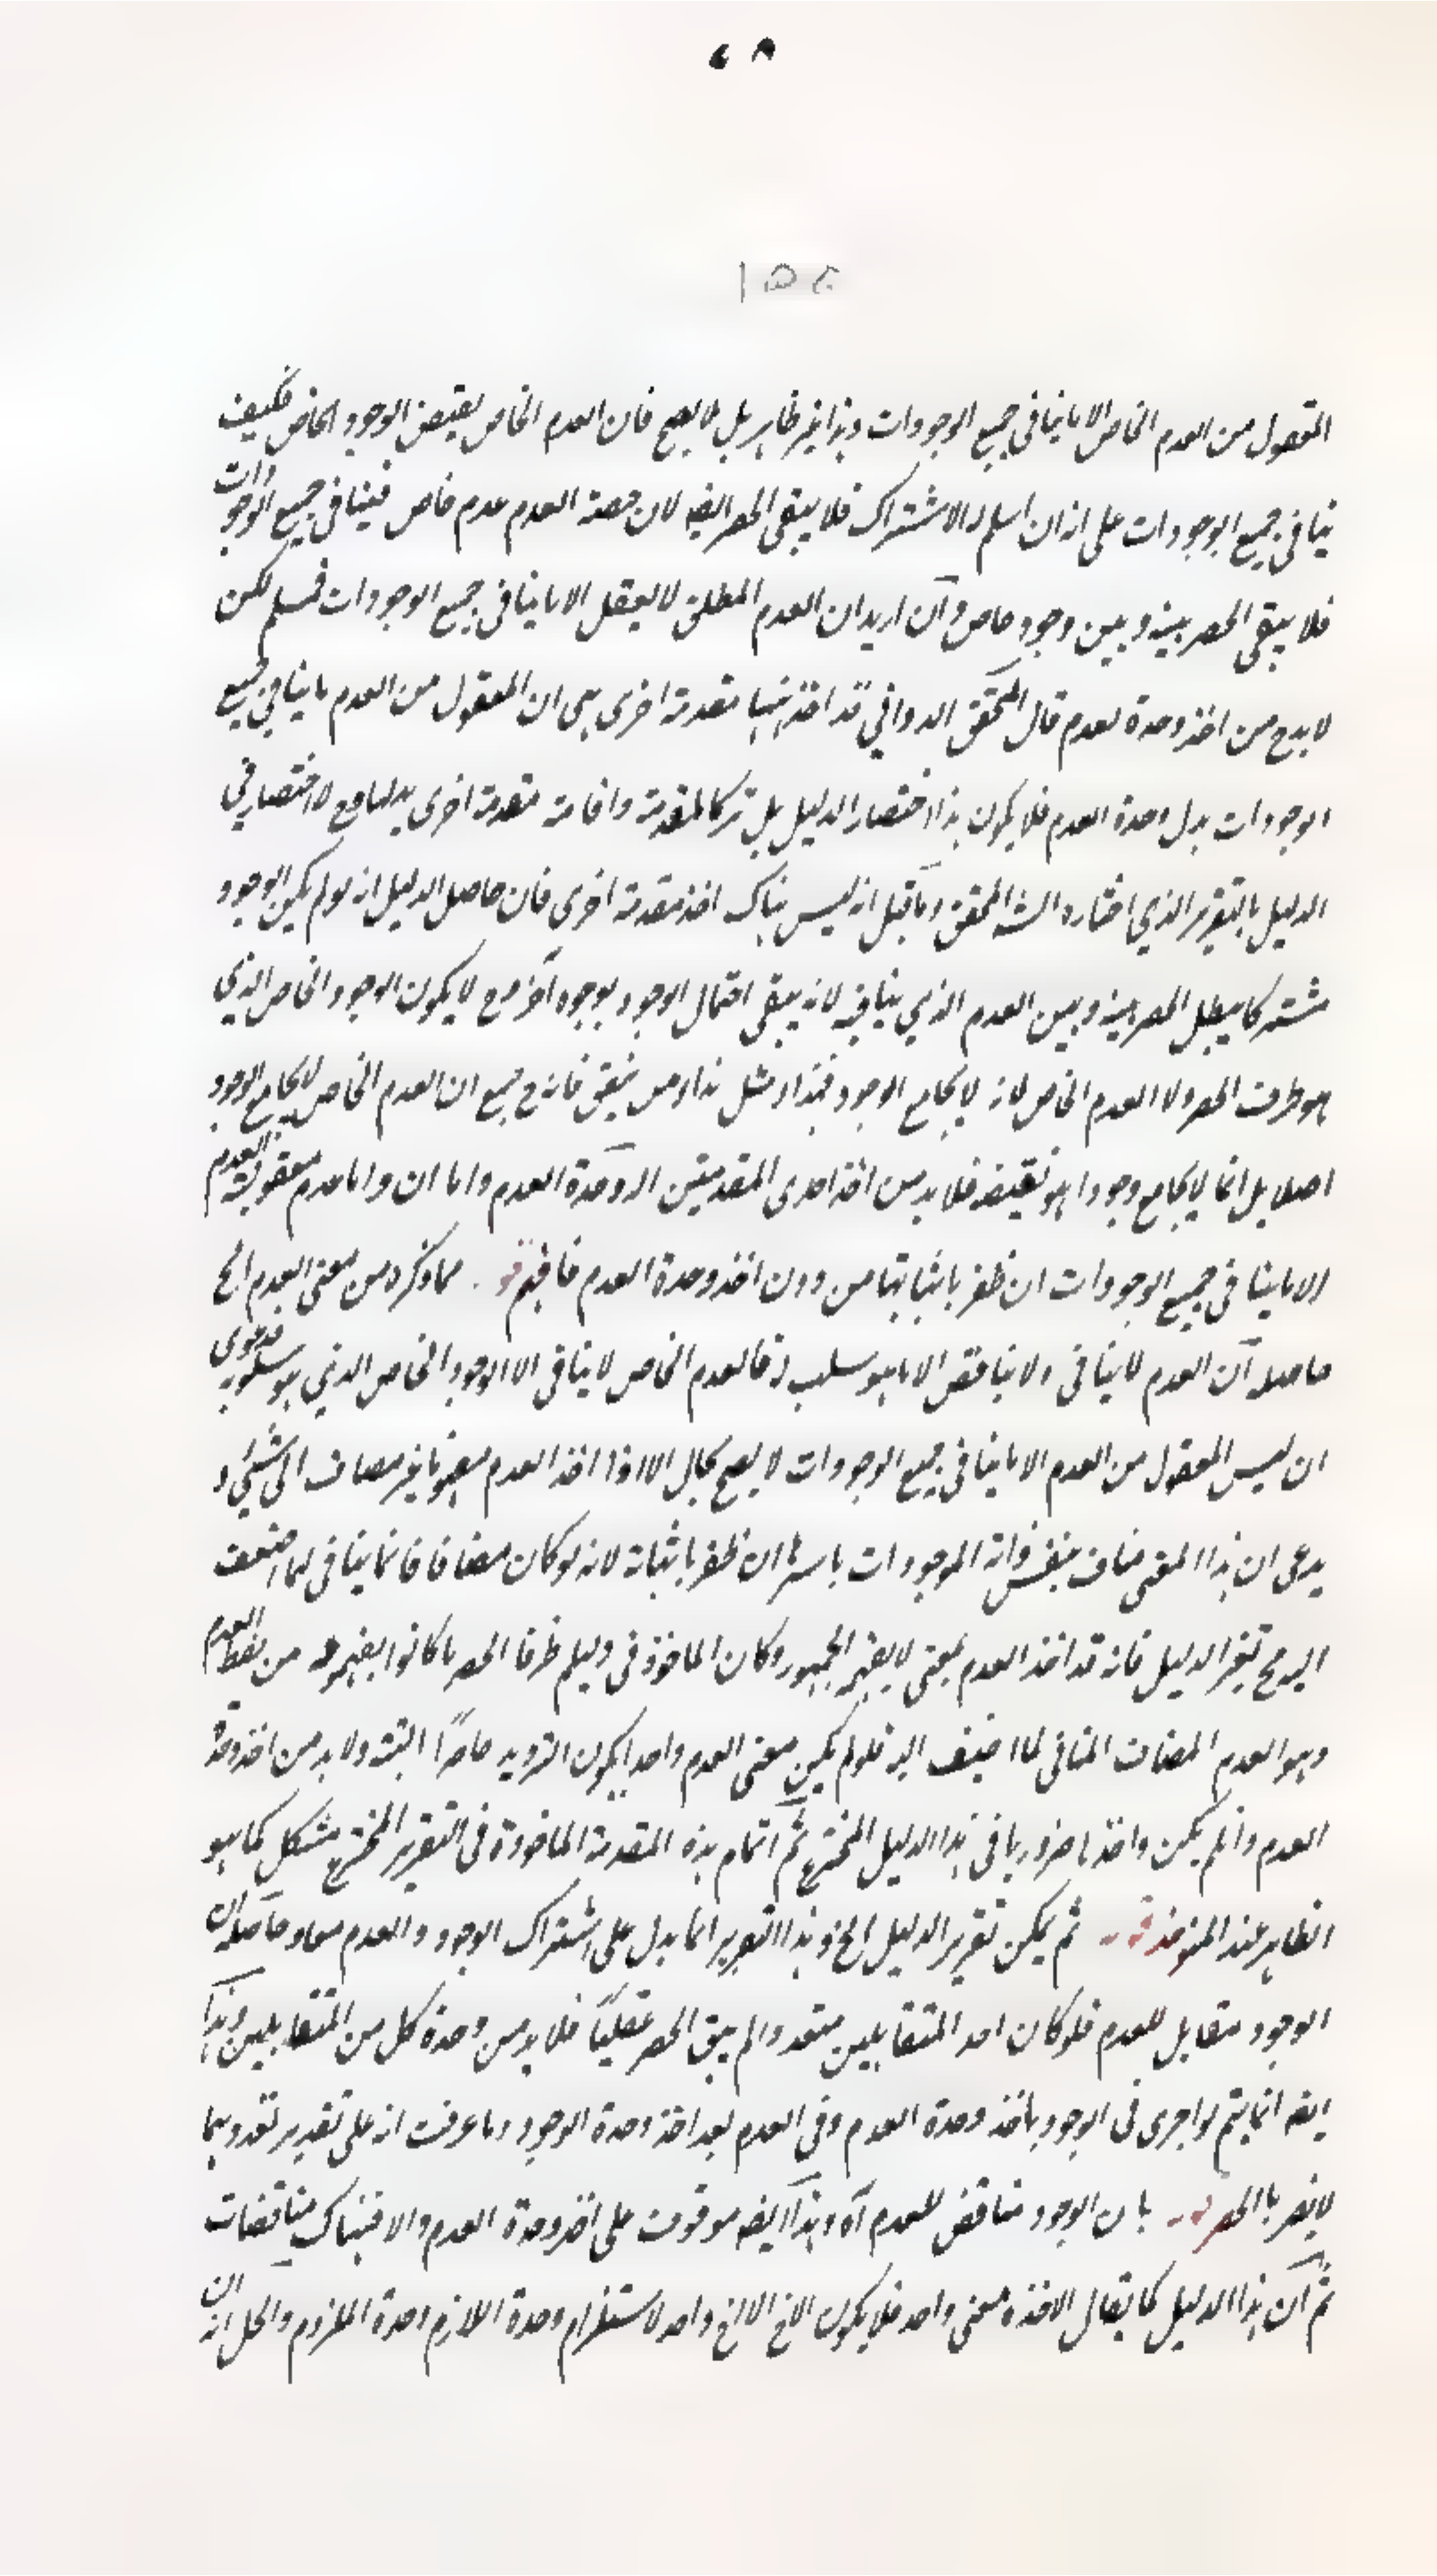 ٤٨
١٥٤
المعقول من العدم الخاص الا ما ينافي جميع الوجودات وهذا غير ظاهر بل لا يصح فان العدم الخاص نقيض الوجود الخاص فكيف
ينافي جميع الوجودات على انه ان اسلم الاشتراك فلا يبقى الحصر ايضه لان حصة العدم عدم خاص فينافي جميع الوجودات
فلا يبقى الحصر بينه و بين وجود خاص وان اريد ان العدم المطلق لا يعقل الا ما ينافي جميع الوجودات فمسلم لكن
لا بد ح من اخذ وحدة العدم قال المحقق الدواني قد اخذ ههنا مقدمة اخرى هى ان المعقول من العدم ما ينافي جميع
الوجودات بدل وحدة العدم فلا يكون هذا اختصار الدليل بل تركا لمقدمة واقامة مقدمة اخرى بدلها مع لا اختصار في
الدليل بالتقرير الذي اختاره الشه المحقق وما قيل انه ليس هناك اخذ مقدمة اخرى فان حاصل الدليل انه لو لم يكن الوجود
مشتركا يبطل الحصر بينه و بين العدم الذي ينافيه لانه يبقى احتمال الوجود بوجود آخر مع لا يكون الوجود الخاص الذي
هو طرف الحصر ولا العدم الخاص لانه لا يجامع الوجود فانه ح يمنع ان العدم الخاص لا يجامع الوجود
اصلا بل انما لا يجامع وجودا هو نقيضه فلا بد من اخذ احدى المقدمتين اما وحدة العدم واما ان واما عدم معقولية العدم
الا ما ينافي جميع الوجودات ان ظفر باثباتها من دون اخذ وحدة العدم فافهم قو مما ذكره من معنى العدم الخ
حاصله ان العدم لا ينافي ولا يناقض الا ما هو سلب له فالعدم الخاص لا ينافي الا الوجود الخاص الذي هو سلو به فدعوى
ان ليس المعقول من العدم الا ما ينافي جميع الوجودات لا يصح بحال الا اذا اخذ العدم مفهوما غير مضاف الى شئ و
يدعى ان هذا المعنى مناف بنفس ذاته الموجودات باسرها ان ظفر باثباته لانه لو كان مضافا فانما ينافي لما اضيف
اليه مح تغير الدليل فانه قد اخذ العدم بمعنى لا يفهمه الجمهور وكان الماخوذ في دليلهم طرفا الحصر ما كانوا يفهموه من لفظ العدم
وهو العدم المضاف المنافي لما اضيف اليه فلو لم يكن معنى العدم واحدا يكون الترديد حاصرا البتة ولا بد من اخذ وحدة
العدم وان لم يكن واخذها ضروريا في هذا الدليل المخترع ثم اتمام هذه المقدمة الماخوذة في التقرير المخترع مشكل كما هو
الظاهر عند المنصف قو ثم يمكن تقرير الدليل الخ و هذا التقرير انما يدل على اشتراك الوجود والعدم معا وحاصله ان
الوجود مقابل للعدم فلو كان احد المتقابلين متعددا لم يبق الحصر عقليا فلا بد من وحدة كل من المتقابلين وهذا
ايضه انما يتم لو اجرى في الوجود باخذ وحدة العدم وفى العدم بعد اخذ وحدة الوجود وما عرفت انه على تقدير تعددهما
لا يضر بالحصر قو بان الوجود مناقض للعدم آه وهذا ايضه موقوف على اخذ وحدة العدم والا فهناك مناقضات
ثم ان هذا الدليل كما يقال الاخذه معنى واحد فلا يكون الاخ الا لاخ واحد لاستلزام وحدة اللازم وحدة الملزوم والحل انه ان